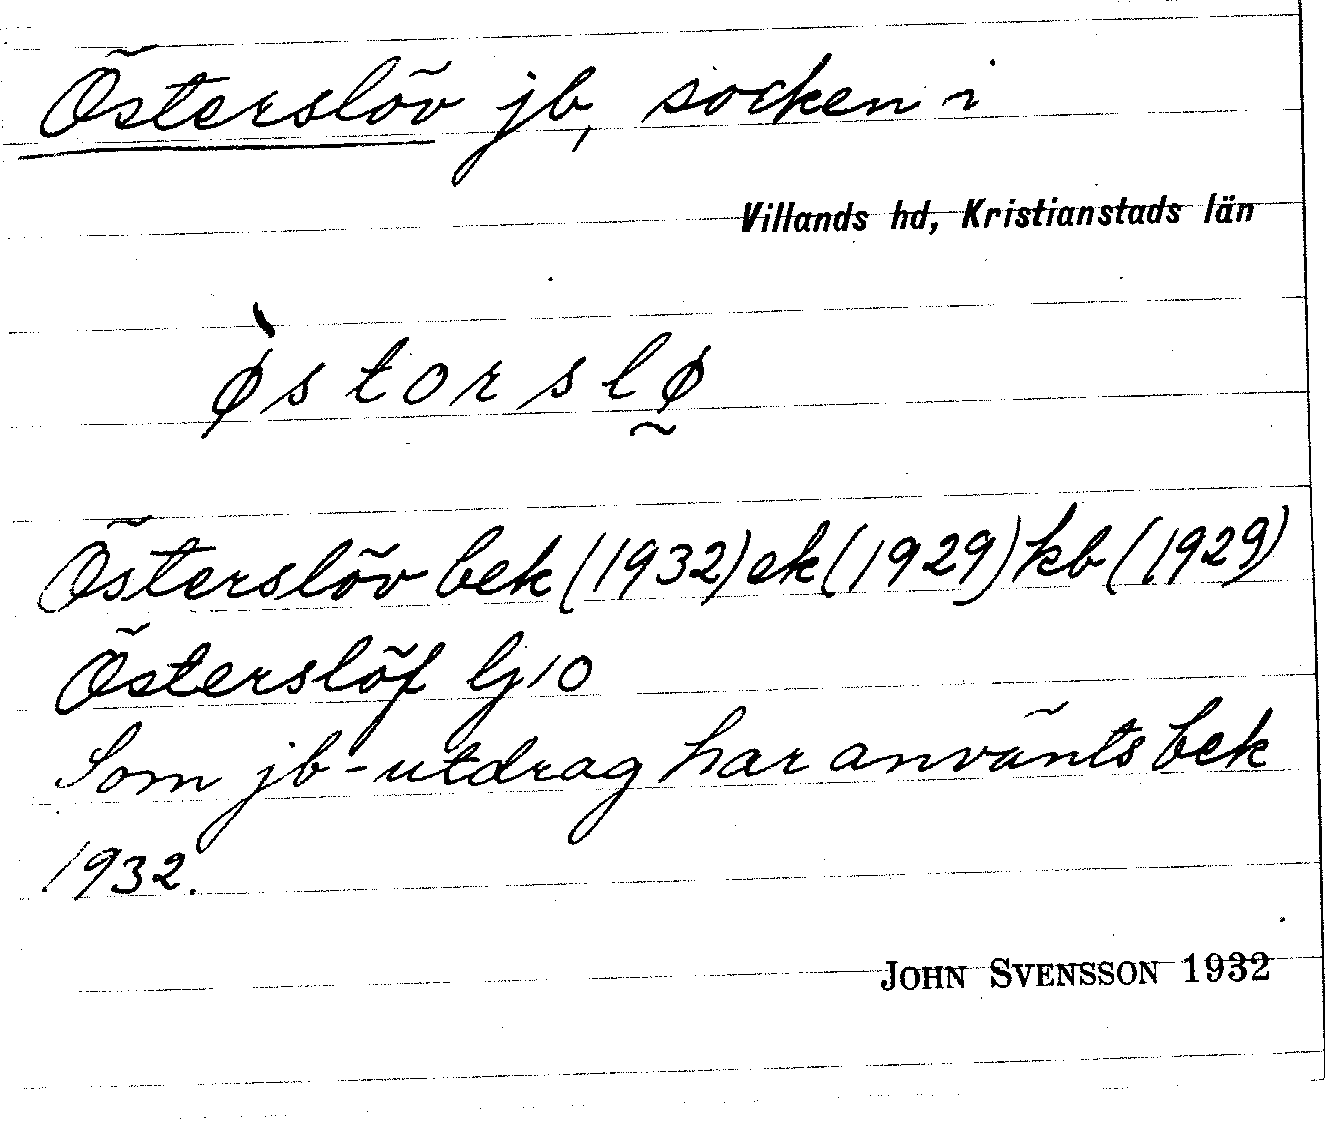 Österslöv jb, socken i
Villands hd, Kristianstads län
ø̀storslø̰
Österslöv bek (1932) ek (1929) kb (1929)
Österslöf lj 10
Som jb-utdrag har använts bek
1932.
JOHN SVENSSON 1932